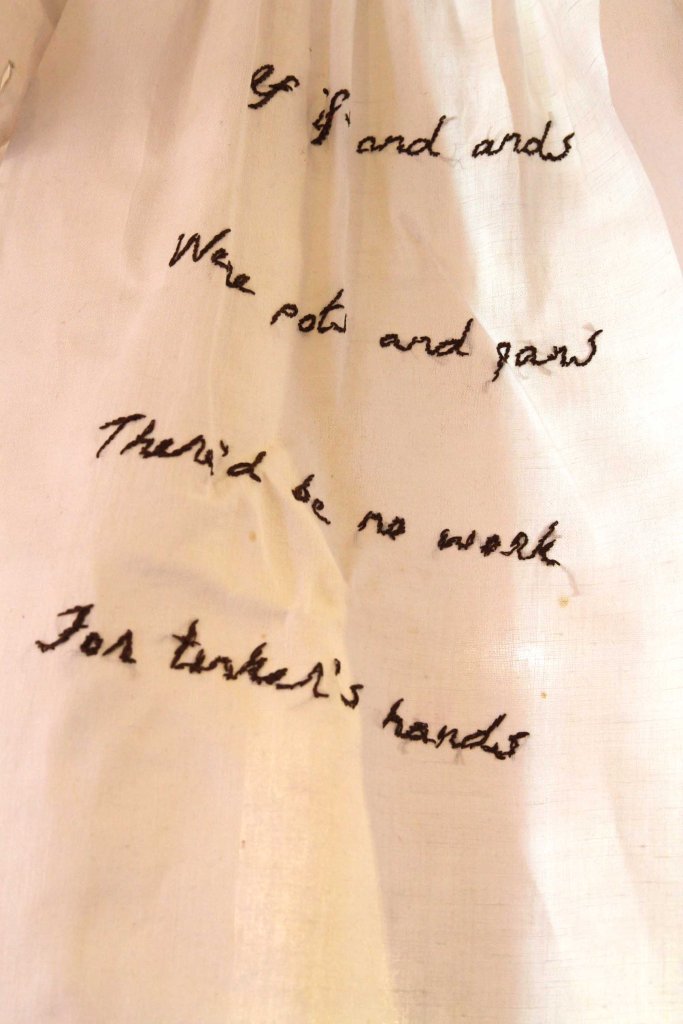 If if' and ands
Were pots and pans
There'd be no work
For tinker's hands